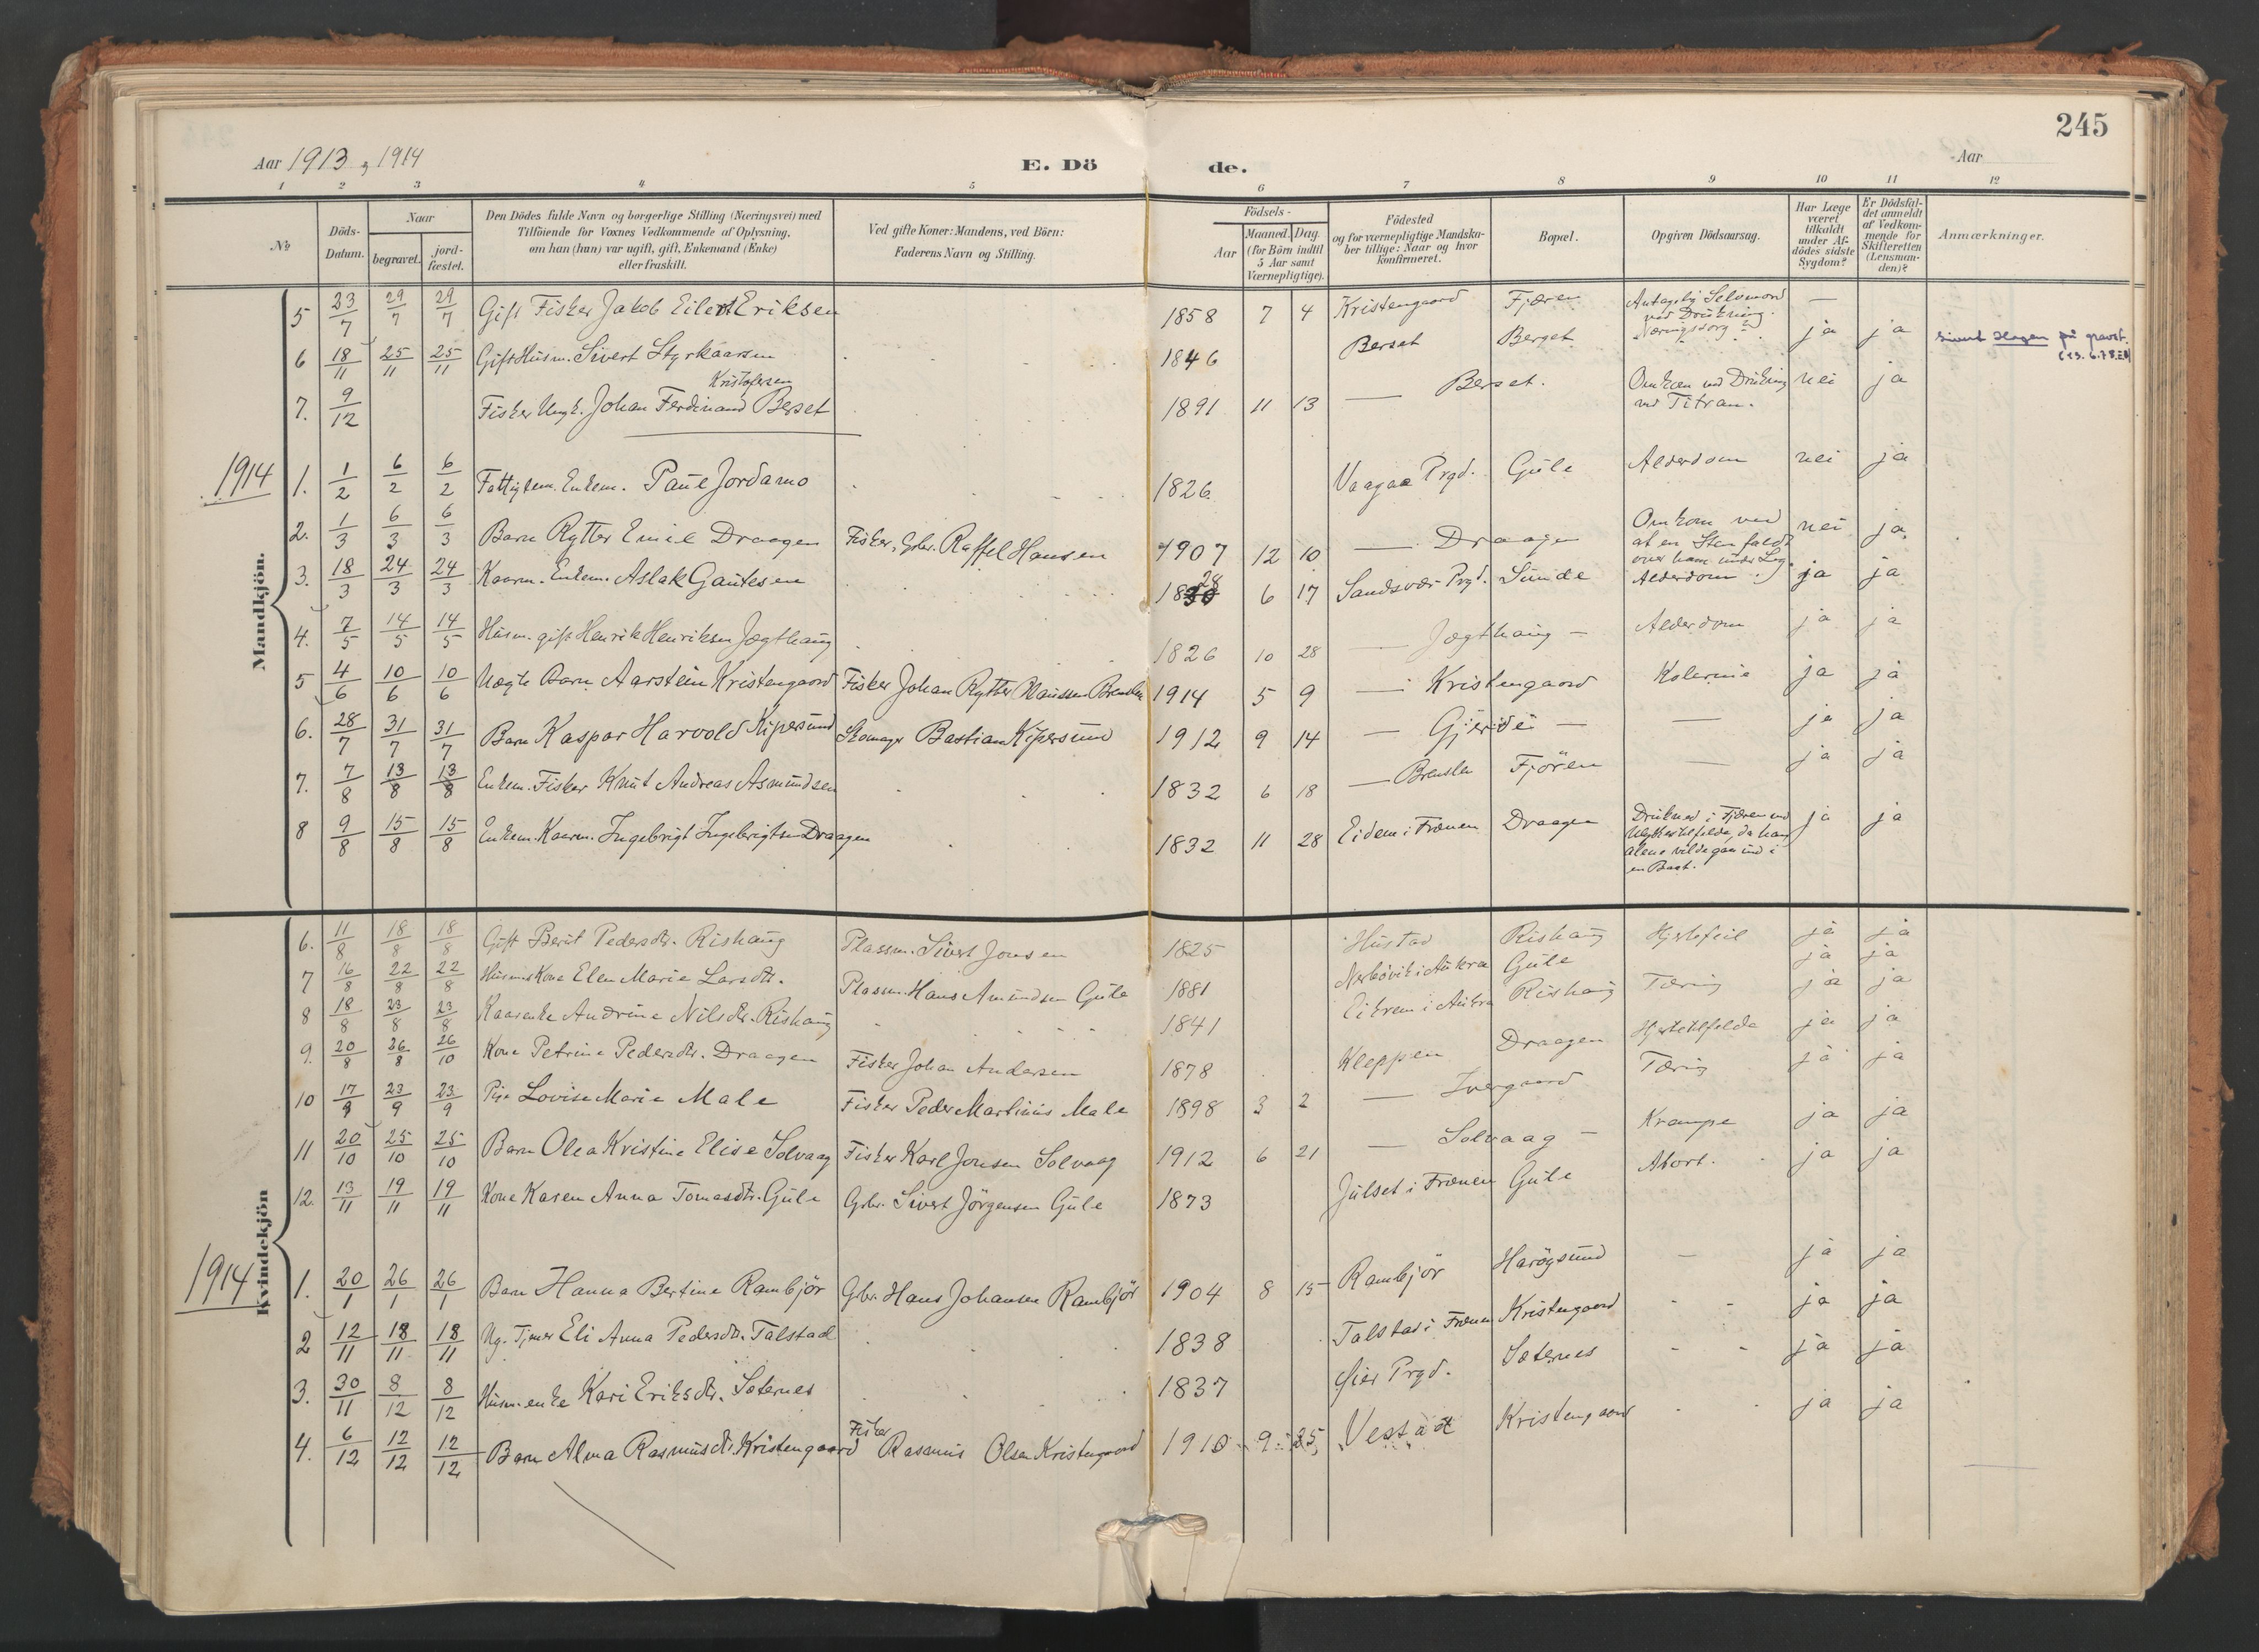 245
Aar 1913 , 1914 E. Dö de. Aar
1 2 3 4 5 6 7 8 9 10 11 12
No
Döds-Datum.
Naar
begravet.
jord-fæstet.
Den Dödes fulde Navn og borgerlige Stilling (Næringsvei) med
Tilföiende for Voxnes Vedkommende af Oplysning,
om han (hun) var ugift, gift, Enkemand (Enke)
eller fraskilt.
Ved gifte Koner: Mandens, ved Börn:
Faderens Navn og Stilling.
Födsels-
Aar
Maaned. Dag.
(for Börn indtil
5 Aar samt
Værnepligtige).
Födested
og for værnepligtige Mandska-
ber tillige: Naar og hvor
konfirmeret.
Bopæl.
Opgiven Dödsaarsag.
Har Læge
været
tilkaldt
under Af-
dödes sidste
Sygdom?
Er Dödsfal-
det anmeldt
af Vedkom-
mende for
Skifteretten
(Lensman-
den)?
Anmærkninger.
Mandkjön.
5 23/7 29/7 29/7 Gift Fisker Jakob Eilert Eriksen 1858 7 4 Kristengaard Fjæren Antagelig Selvmord ved Drukning. Næringssorg? —
6 18/11 25/11 25/11 Gift Husm. Sivert Styrkaarsen 1846 Berset Berset ja ja Sivert Hagen på gravst.
7. 9/12 Fisker Ungk. Johan Ferdinand Kristofersen Berset 1891 11 13 — Berset. Omkom ved Drukning ved Titran. nei ja
1914
1. 1/2 6/2 6/2 Fattiglem. Enkem. Paul Jordamo 1826 Vaagaa Prgd. Gule Alderdom nei ja
2. 1/3 6/3 6/3 Barn Rytter Emil Draagen Fisker, Gbr. Raffel Hansen 1907 12 10 — Draagen Omkom ved at en Sten faldt over ham under Leg. nei ja.
3. 18/3 24/3 24/3 Kaarm. Enkem. Aslak Gautesen 1830 28 6 17 Sandsvær Prgd. Sunde Alderdom. ja ja
4. 7/5 14/5 14/5 Husm. gift Henrik Henriksen Jægthaug 1826 10 28 — Jægthaug — Alderdom ja ja
5 4/6 10/6 10/6 Uægte Barn Aarstein Kristengaard Fisker Johan Rytter Klaussen Breivlen 1914 5 9 — Kristengaard Kolerine ja ja
6. 28/7 31/7 31/7 Barn Kaspar Harvold Kipersund Skomager Bastian Kipersund 1912 9 14 — Gjeide — — ja ja
7. 7/8 13/8 13/8 Enkem. Fisker Knut Andreas Asmundsen 1832 6 18 — Fjören — ja ja
8 9/8 15/8 15/8 Enkem. Kaarm. Ingebrigt Ingebrigtsen Draagen 1832 11 28 Eidem i Frænen Draagen Druknet i Fjæren ved Ulykkestilfelde, da han alene vilde gaa ind i en Baat. ja ja
Kvindekjön
6. 11/8 18/8 18/8 Gift Berit Pedersdtr. Rishaug Plassm. Sivert Jonsen 1825 Hustad Rishaug Hjertefeil ja ja
7 16/8 22/8 22/8 Husmands Kone Elen Marie Larsdtr. Plassm. Hans Amundsen Gule 1881 Nerbövik i Aukra Gule ja ja
8 18/8 23/8 23/8 Kaarenke Andrine Nilsdtr. Rishaug 1841 Eikrem i Aukra Rishaug Tæring ja ja
9. 20/8 26/8 26/10 Kone Petrine Pedersdtr. Draagen Fisker Johan Andersen 1878 Kleppen Draagen Hjertetilfelde ja ja
10 17/9 23/9 23/9 Pige Lovise Marie Male Fisker Peder Martinus Male 1898 3 2 — Ivergaard Tæring ja ja
11 20/10 25/10 25/10 Barn Olea Kristine Elise Solvaag Fisker Karl Jonsen Solvaag 1912 6 21 — Solvaag — Krampe ja ja
12. 13/11 19/11 19/11 Kone Karen Anna Tomasdtr. Gule Gbr. Sivert Jörgensen Gule 1873 Julset i Frænen Gule Abort. ja ja
1914
1. 20/1 26/1 26/1 Barn Hanna Bertine Rambjör Gbr. Hans Johansen Rambjör 1904 8 15 Rambjör Haröysund — ja ja
2 12/11 18/11 18/11 Ug. Tjener Eli Anna Pedersdtr. Talstad 1838 Talstad i Frænen Kristengaard - - ja ja
3. 30/11 8/12 8/12 Husm. enke Kari Eriksdtr. Sæternes 1837 Öier Prgd. Sæternes - - ja ja
4. 6/12 12/12 12/12 Barn Alma Rasmusdtr. Kristengaard Fisker Rasmus Olsen Kristengaard 1910 9 25 Vestad Kristengaard ja ja